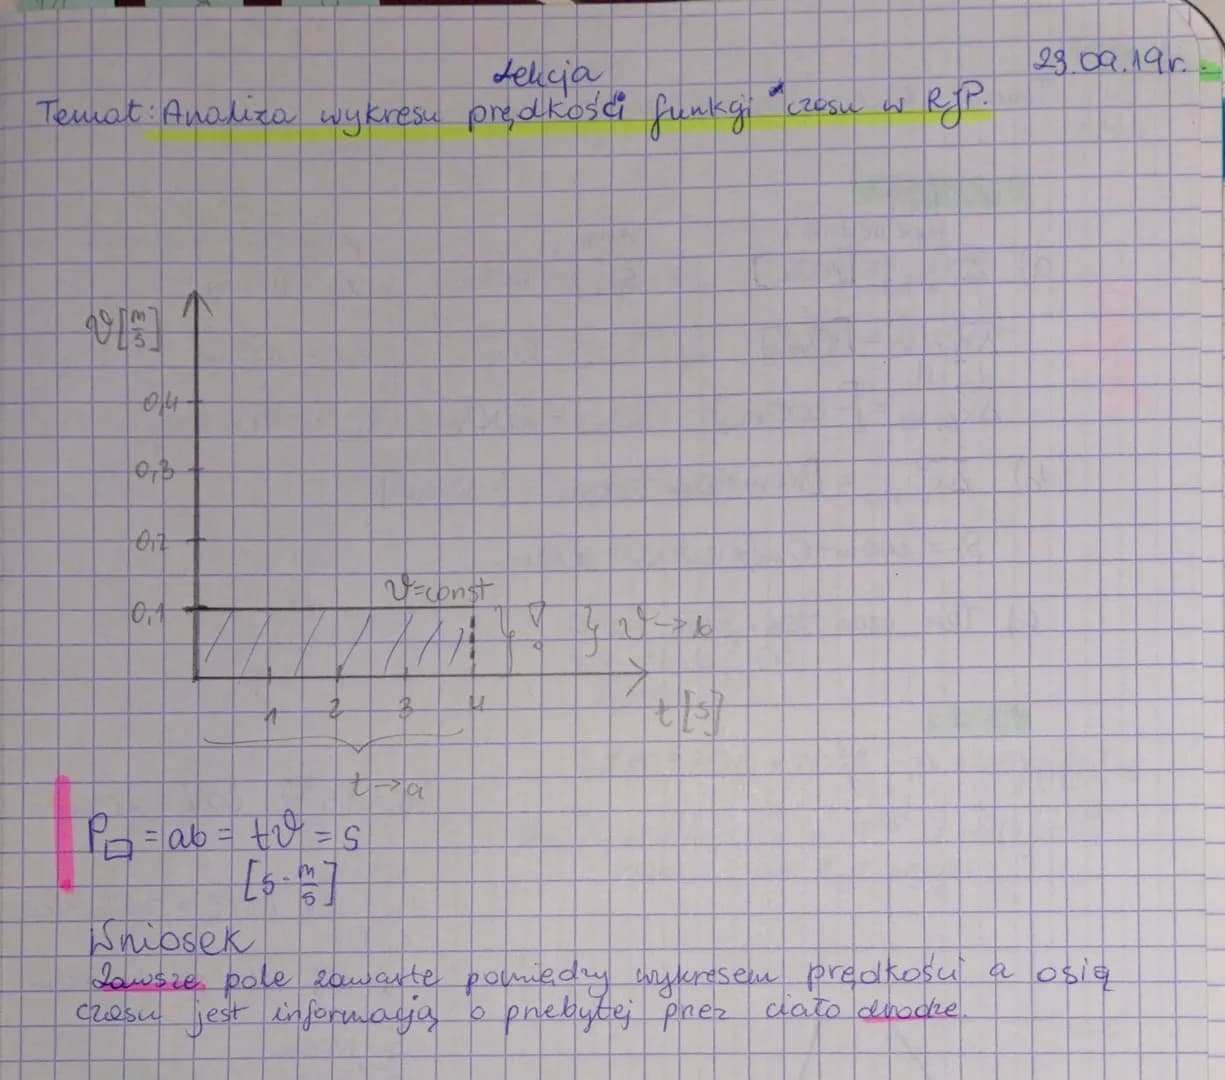 Lekcja
23.09.19r.
Temat: Analiza wykresu prędkości funkcji czasu w RJP.
v[m/s]
0,4
0,3
0,2
v=const
0,1
} v→b
1 2 3 4
t[s]
t→a
P▭ = ab = tv = s
[s·m/s]
Wniosek
Zawsze pole zawarte pomiędzy wykresem prędkości a osią
czasu jest informacją o przebytej przez ciało drodze.